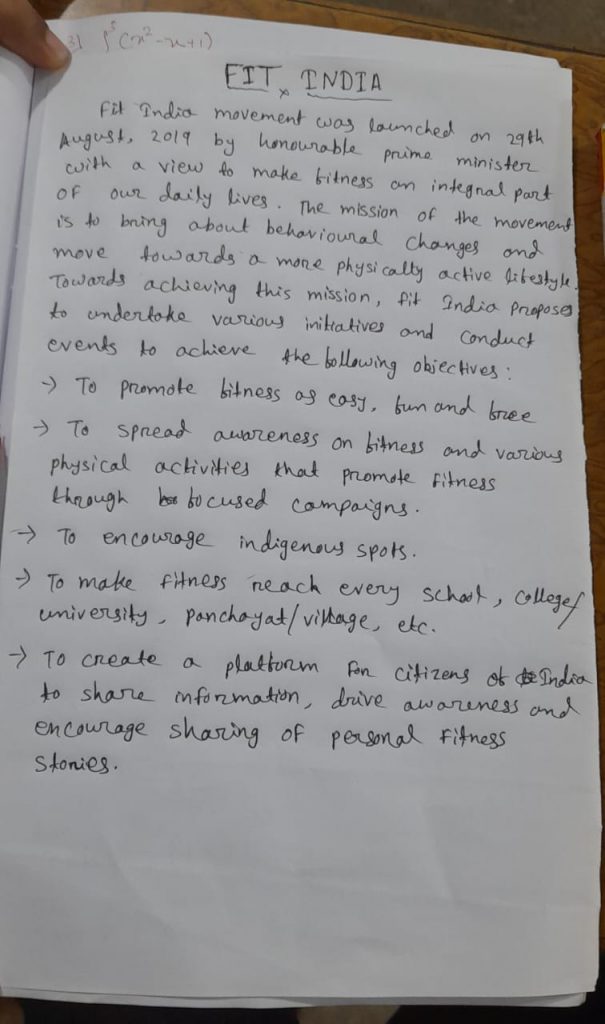 31 ∫⁵(x²-x+1)
FIT INDIA
Fit India movement was launched on 29th
August, 2019 by honourable prime minister
with a view to make fitness an integral part
of our daily lives. The mission of the movement
is to bring about behavioural changes and
move towards a more physically active lifestyle.
Towards achieving this mission, fit India proposes
to undertake various initiatives and conduct
events to achieve the following objectives:
→ To promote fitness as easy, fun and free
→ To spread awareness on fitness and various
physical activities that promote fitness
through focused campaigns.
→ To encourage indigenous spots.
→ To make fitness reach every school, college/
university, panchayat/village, etc.
→ To create a platform for citizens of India
to share information, drive awareness and
encourage sharing of personal fitness
stories.